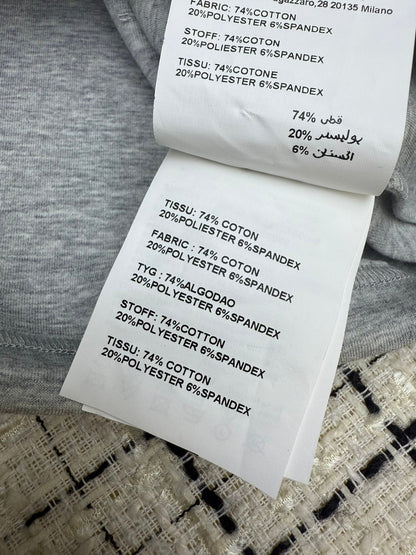 28 20135 Milano
FABRIC: 74%COTTON
20%POLYESTER 6%SPANDEX
STOFF: 74%COTON
20%POLIESTER 6%SPANDEX
TISSU: 74%COTONE
20%POLYESTER 6%SPANDEX
74% قطن
20% بوليستر
6%
TISSU: 74% COTON
20%POLIESTER 6%SPANDEX
FABRIC : 74% COTON
20%POLYESTER 6%SPANDEX
TYG : 74%ALGODAO
20%POLYESTER 6%SPANDEX
STOFF: 74%COTTON
20%POLYESTER 6%SPANDEX
TISSU: 74% COTTON
20%POLYESTER 6%SPANDEX